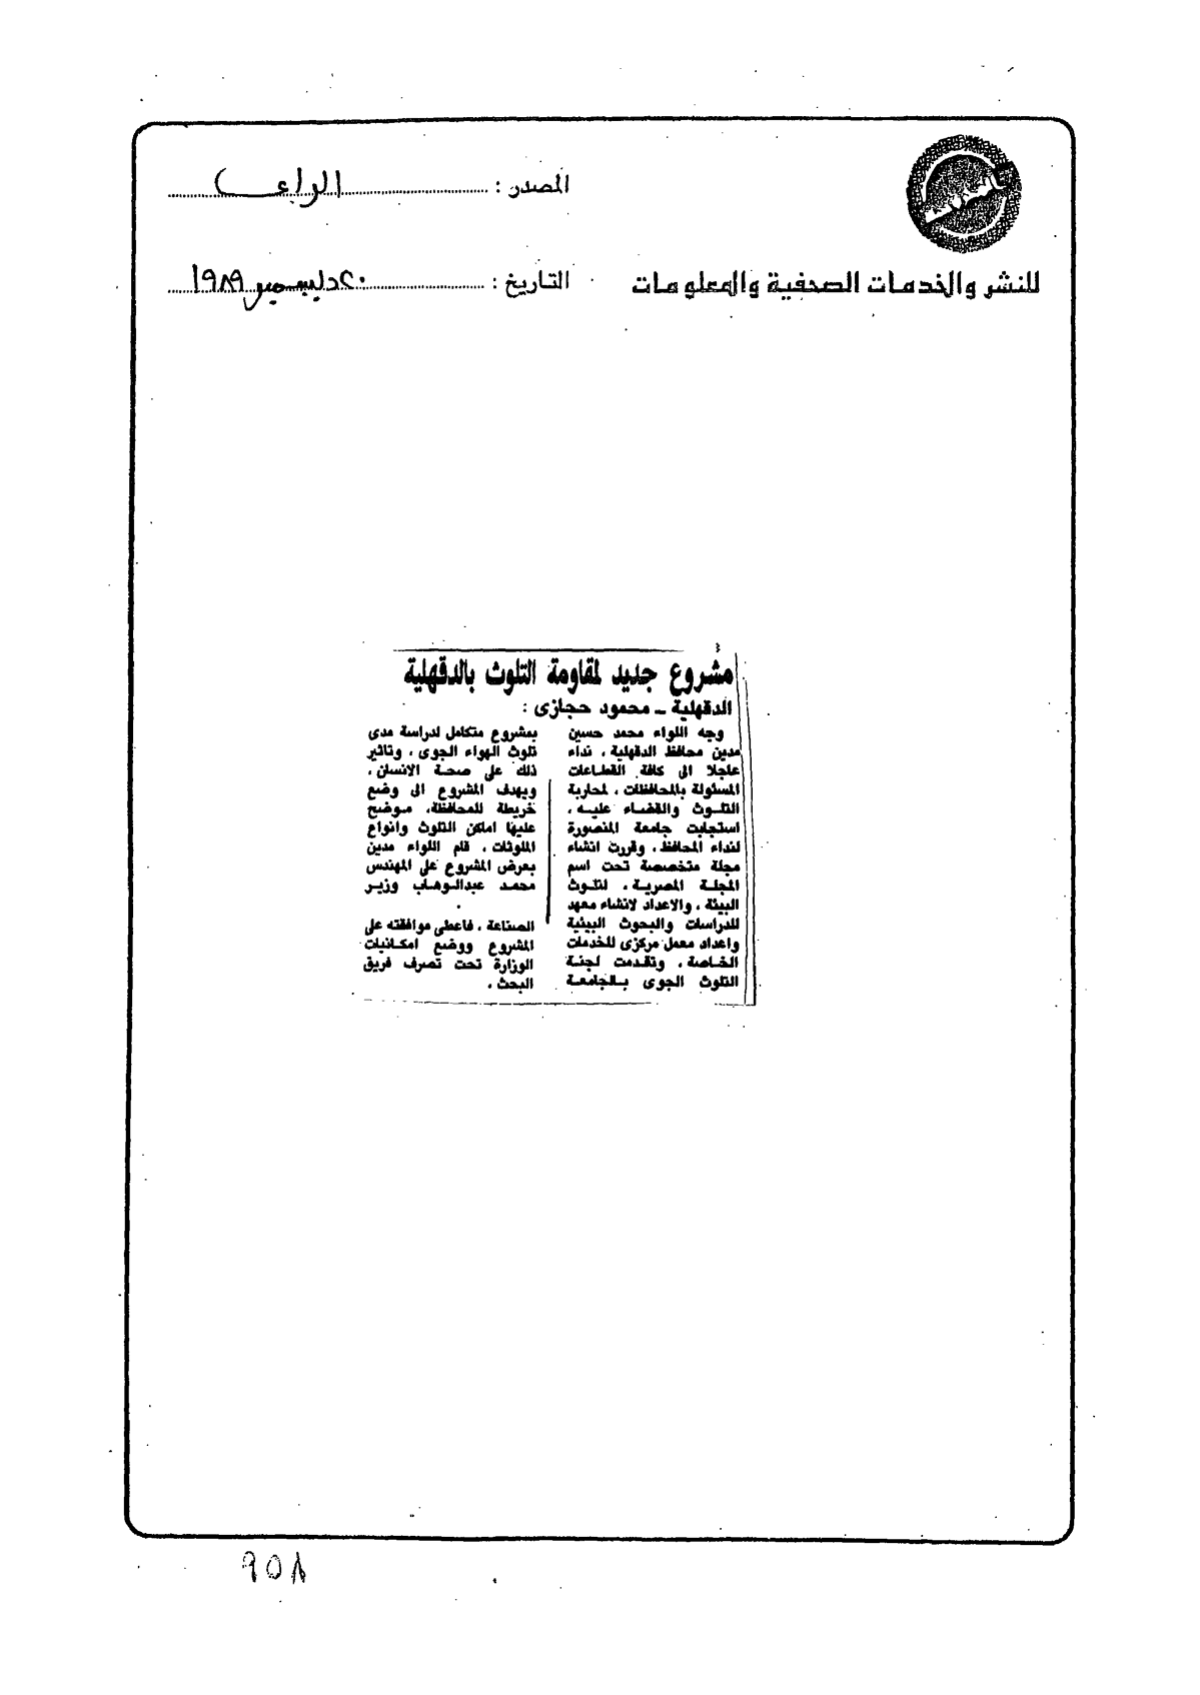 المصدر :
للنشر والخدمات الصحفية والمعلومات
التاريخ : ٢٠ ديسمبر ١٩٨٩
مشروع جديد لمقاومة التلوث بالدقهلية
الدقهلية ــ محمود حجازى :
وجه اللواء محمد حسين
مدين محافظ الدقهلية ، نداء
عاجلا الى كافة القطاعات
المسئولة بالمحافظات ، لمحاربة
التلوث والقضاء عليه .
استجابت جامعة المنصورة
لنداء المحافظ ، وقررت انشاء
مجلة متخصصة تحت اسم
المجلة المصرية ، لتلوث
البيئة ، والاعداد لانشاء معهد
للدراسات والبحوث البيئية
واعداد معمل مركزى للخدمات
الخاصة . وتقدمت لجنة
التلوث الجوى بالجامعة
بمشروع متكامل لدراسة مدى
تلوث الهواء الجوى ، وتاثير
ذلك على صحة الانسان .
ويهدف المشروع الى وضع
خريطة للمحافظة، موضح
عليها اماكن التلوث وانواع
الملوثات . قام اللواء مدين
بعرض المشروع على المهندس
محمد عبدالوهاب وزير
الصناعة ، فاعطى موافقته على
المشروع ووضع امكانيات
الوزارة تحت تصرف فريق
البحث .
٩٥٨